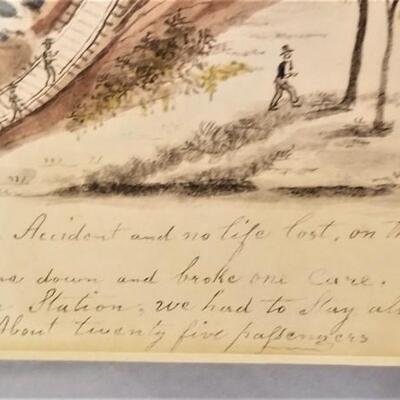 Accident and no life lost, on th
down and broke one Care.
Station, we had to Stay al
About twenty five passengers